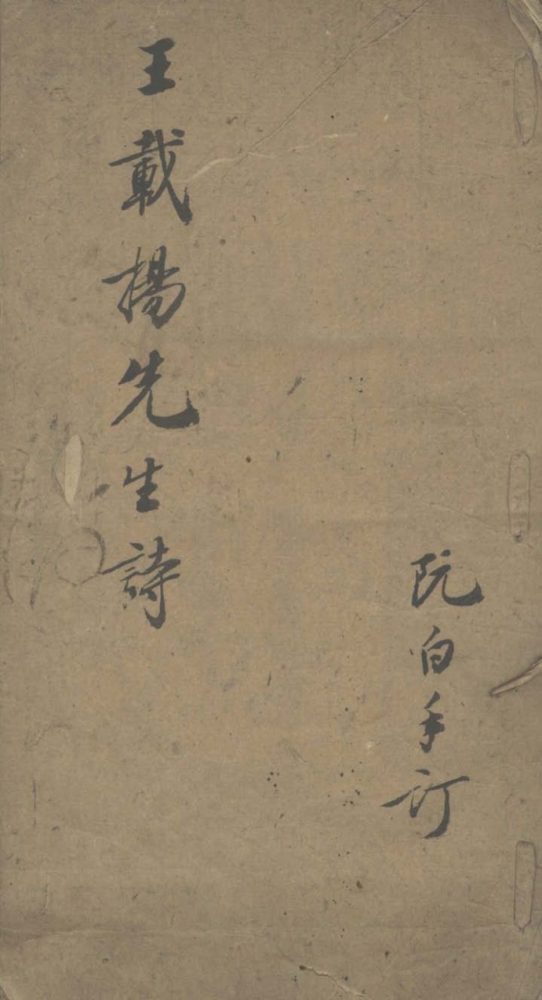 王載楊先生詩
阮白手訂